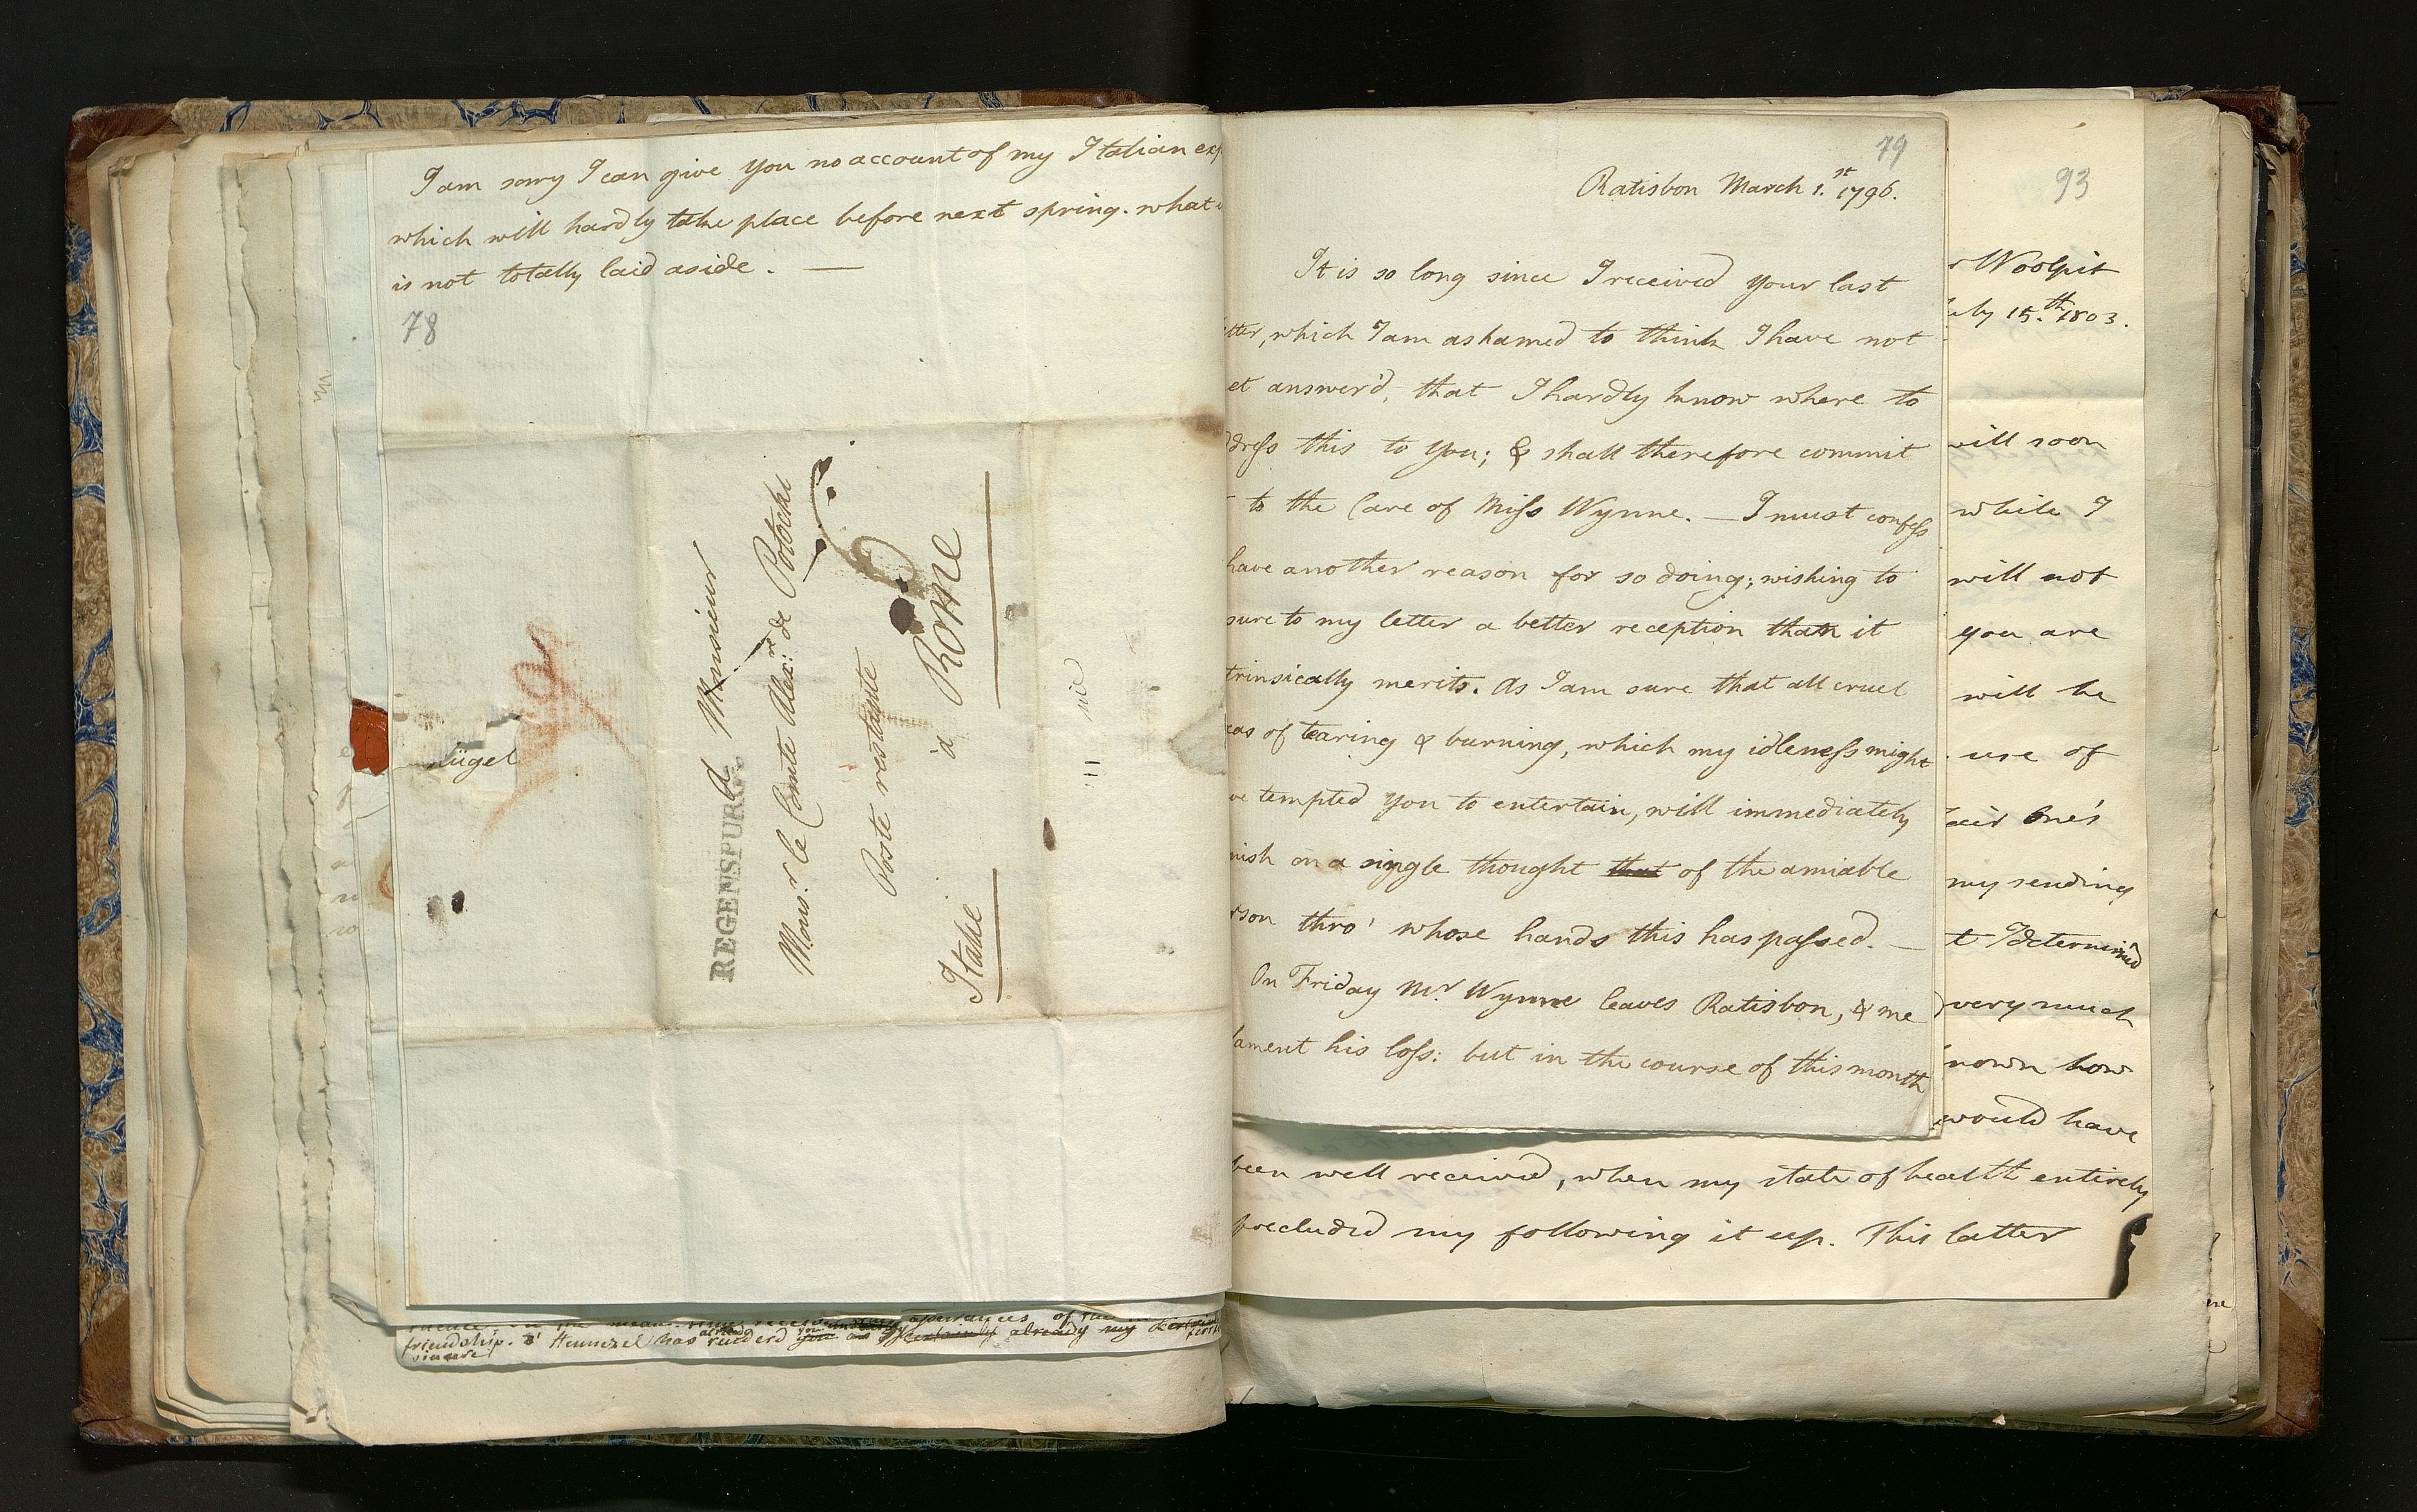 I am sorry I can give you no account of my Italian exp
which will hardly take place before next spring. what
is not totally laid aside. —
78
REGENSPURG.
A Monsieur
Mons:r le Comte Alex:re de Potocki
Poste restante
à Rome
Italie
ügel
79
Ratisbon March 1.st 1796.
It is so long since I received your last
tter, which I am ashamed to think I have not
et answer'd, that I hardly know where to
dress this to you; & shall therefore commit
to the Care of Miss Wynne. — I must confess
have another reason for so doing; wishing to
sure to my letter a better reception than it
trinsically merits. As I am sure that all cruel
eas of tearing & burning, which my idleness might
ve tempted you to entertain, will immediately
nish on a single thought that of the amiable
rson thro' whose hands this has passed. —
On Friday Mr Wynne leaves Ratisbon, & me
lament his loss: but in the course of this month
93
r Woolpit
uly 15.th 1803.
will soon
while I
will not
you are
will be
use of
Fair One's
my sending
t I determin'd
very much
nown how
would have
been well received, when my state of health entirely
precluded my following it up. This latter
friendship. Hennezel has already
sincere